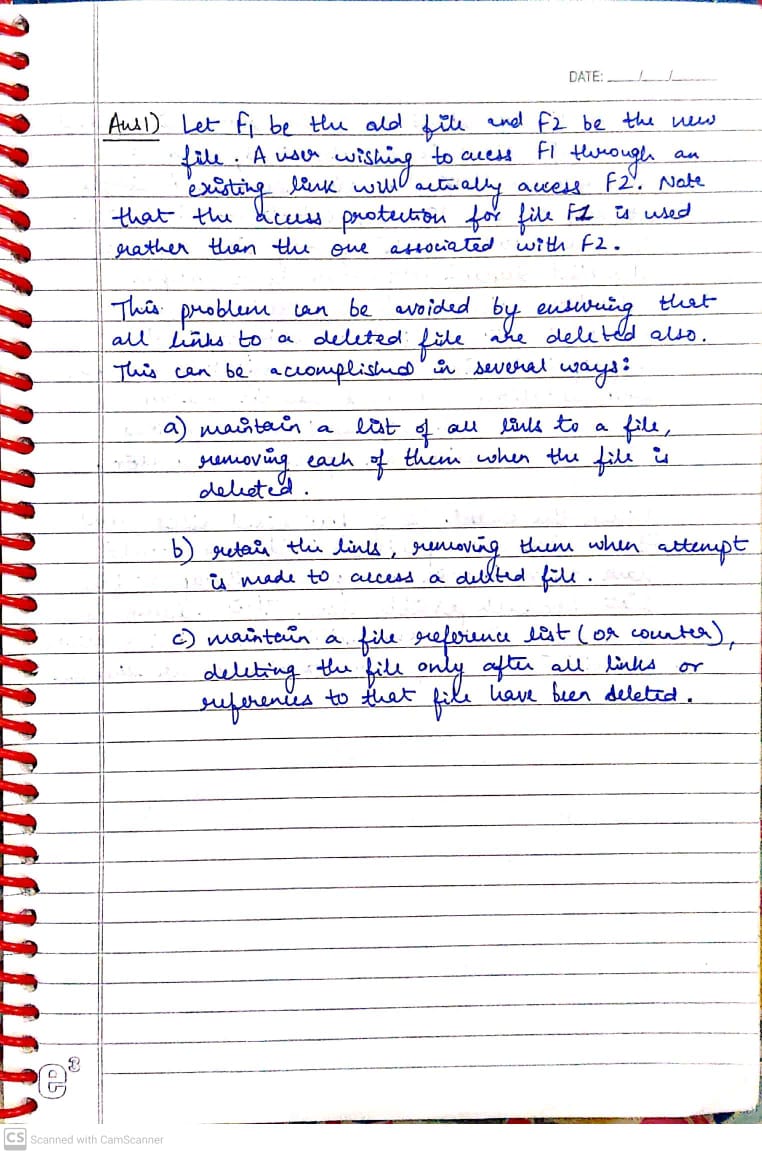 DATE: __/__/__
Ans1) Let F1 be the old file and F2 be the new
file. A user wishing to acess F1 through an
existing link will actually access F2. Note
that the access protection for file F1 is used
rather than the one associated with F2.
This problem can be avoided by ensuring that
all links to a deleted file are deleted also.
This can be accomplished in several ways:
a) maintain a list of all links to a file,
removing each of them when the file is
deleted.
b) retain the links, removing them when attempt
is made to access a deleted file.
c) maintain a file reference list (or counter),
deleting the file only after all links or
references to that file have been deleted.
e3
CS Scanned with CamScanner